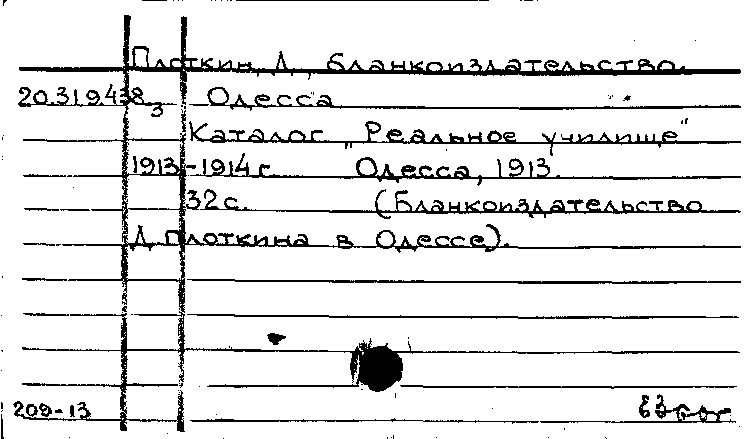 Плоткин, Д, бланкоиздательство.
20.319.438 Одесса
3
Каталог „Реальное училище"
1913-1914 г. Одесса, 1913.
32 с. (Бланкоиздательство
Д. Плоткина в Одессе).
209-13